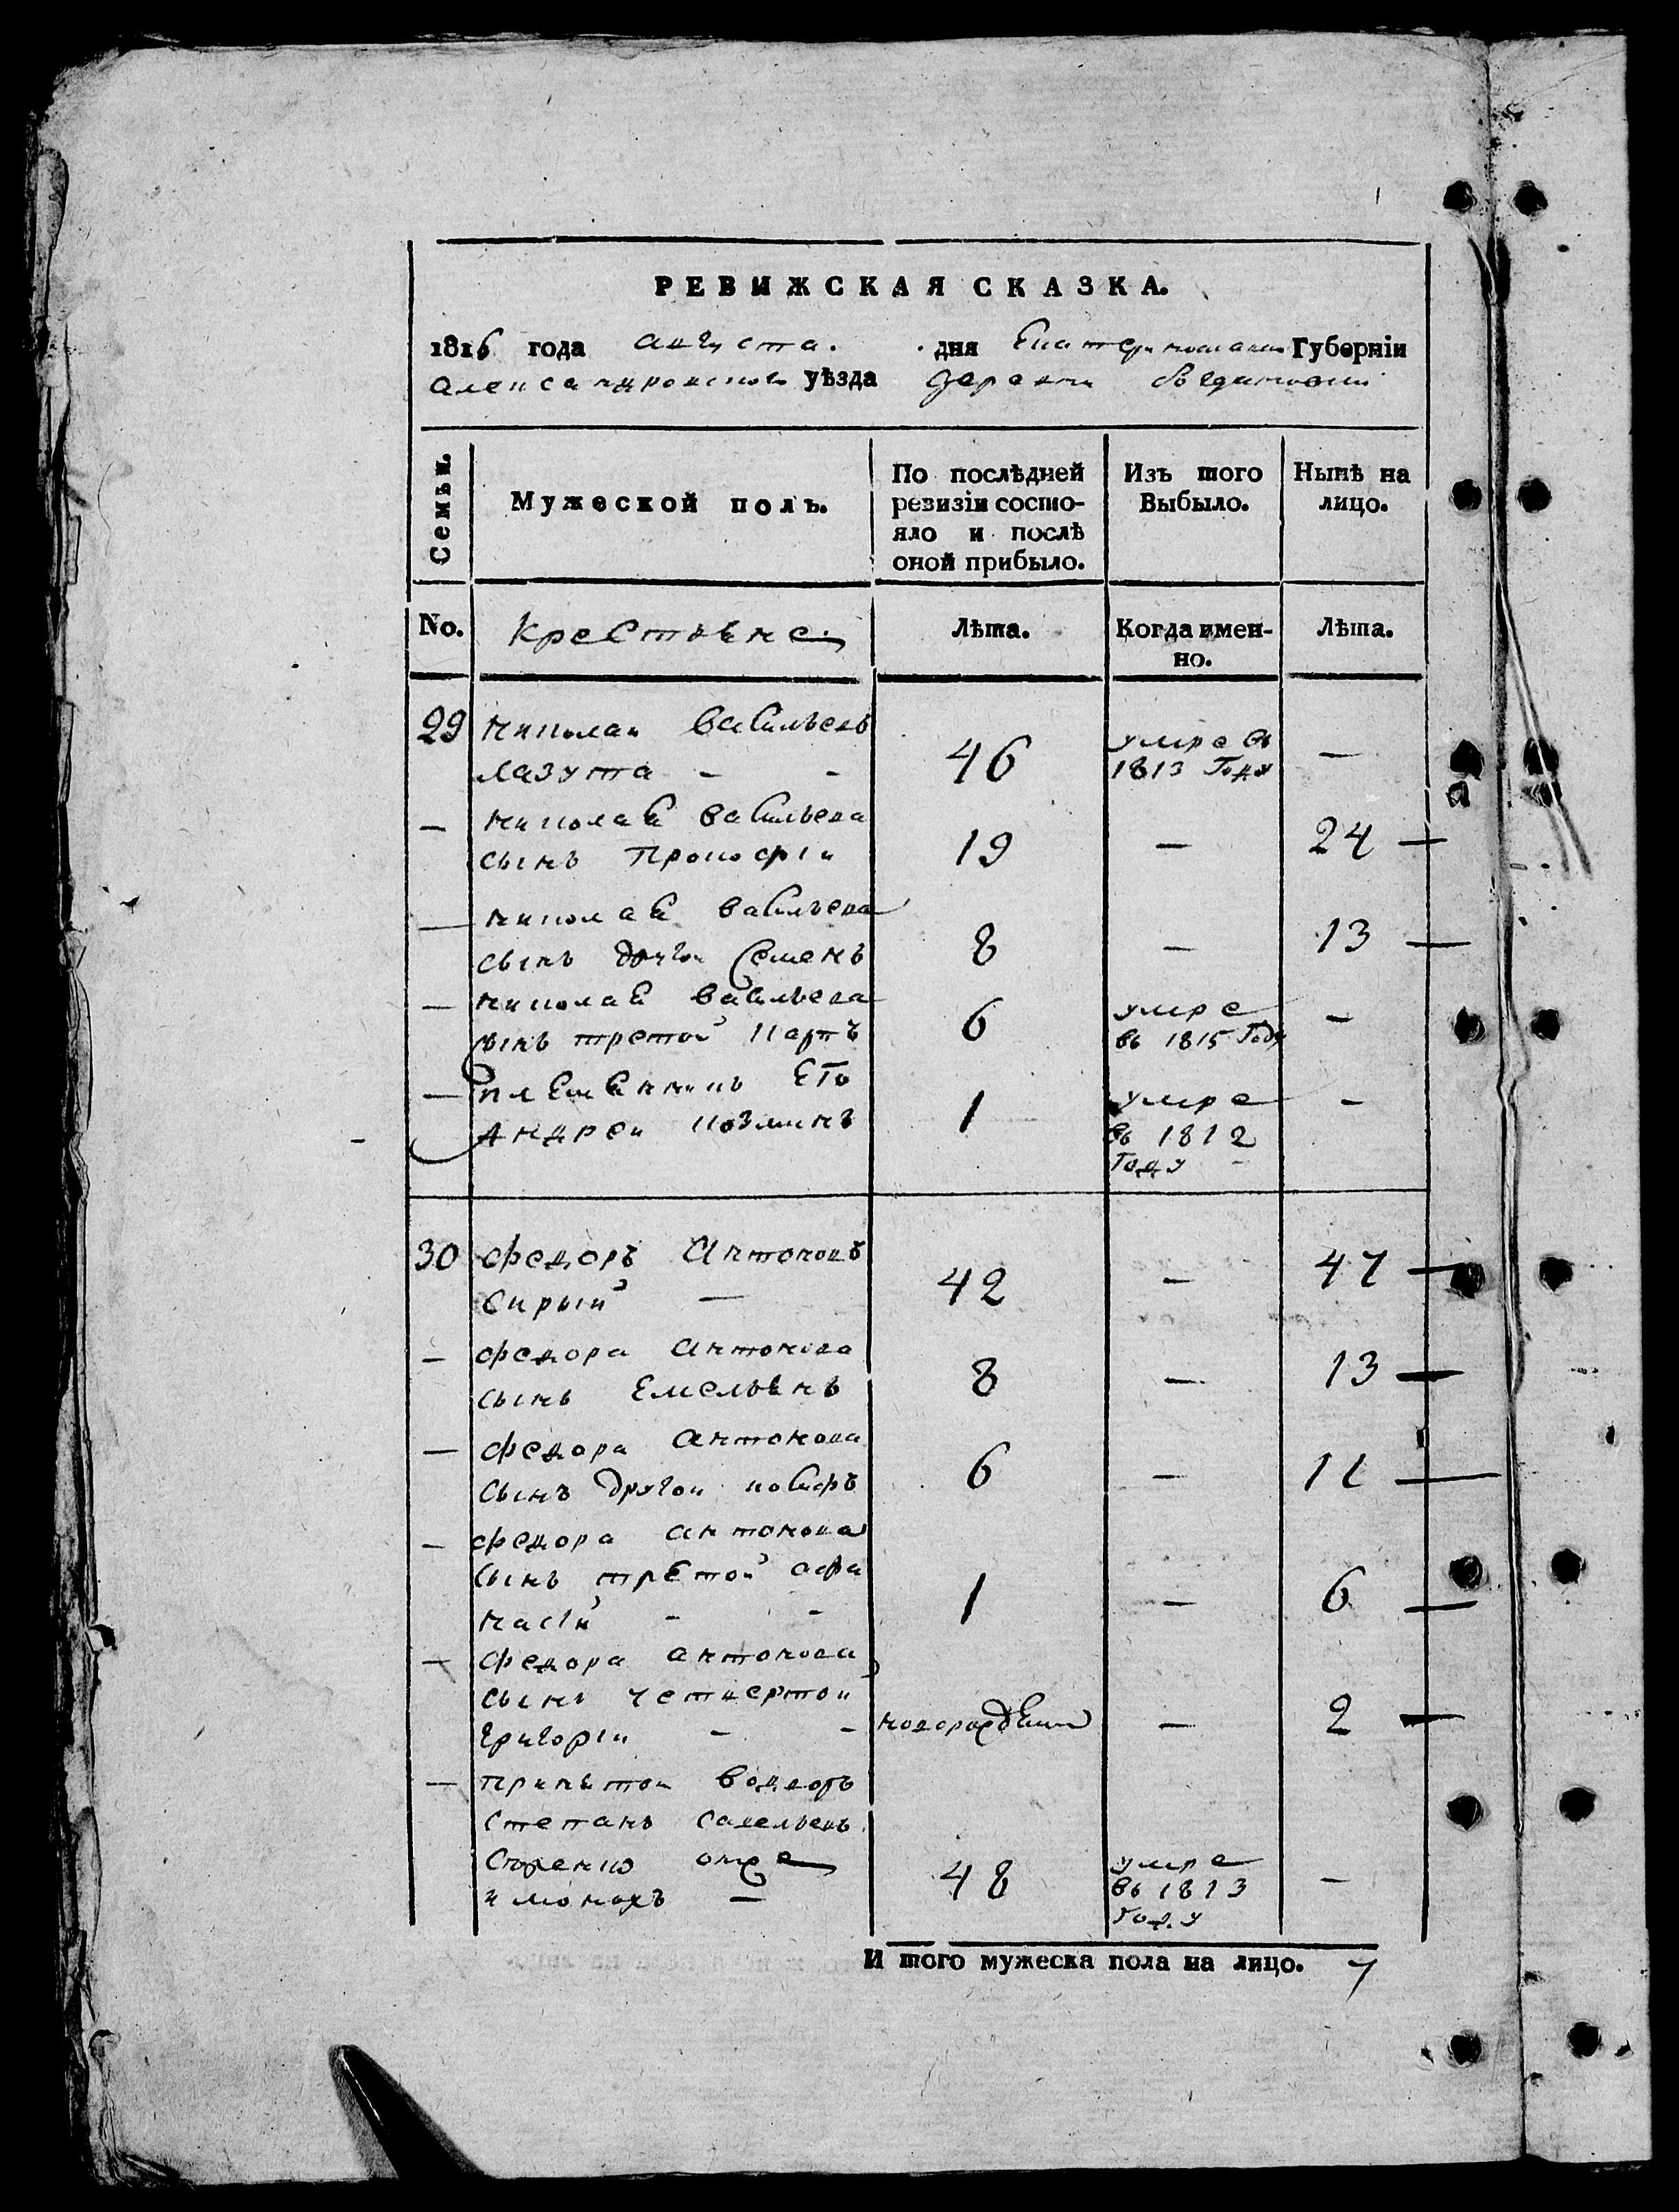 РЕВИЖСКАЯ СКАЗКА.
1816 года августа. дня Екатеринославской Губерніи
Александровского уѣзда деревни
Семьи.
Мужеской полъ.
По послѣдней
ревизіи состо-
яло и послѣ
оной прибыло.
Изъ того
Выбыло.
Нынѣ на
лицо.
No.
Крестьяне
Лѣта.
Когда имен-
но.
Лѣта.
29 Николай Васильевъ
Лазута - - 46 умре въ 1813 Году —
— Николая Васильева
сынъ Прокофіи 19 — 24
— Николая Васильева
сынъ другои Семенъ 8 — 13
— Николая Васильева
сынъ третой Карпъ 6 умре въ 1815 Году —
— племянникъ его
Андреи Козминъ 1 умре въ 1812 Году -
30 Федоръ Антоновъ
Сирый — 42 — 47
— Федора Антонова
сынъ Емельянъ 8 — 13
— Федора Антонова
сынъ другои иосифъ 6 — 11
— Федора Антонова
сынъ третой афа
насій - - 1 — 6
— Федора Антонова
сынъ четвертои
Григоріи - - новорожденн — 2
— принятои водворъ
Степанъ Савельевъ
48 умре въ 1813 Году —
И того мужеска пола на лицо. 7